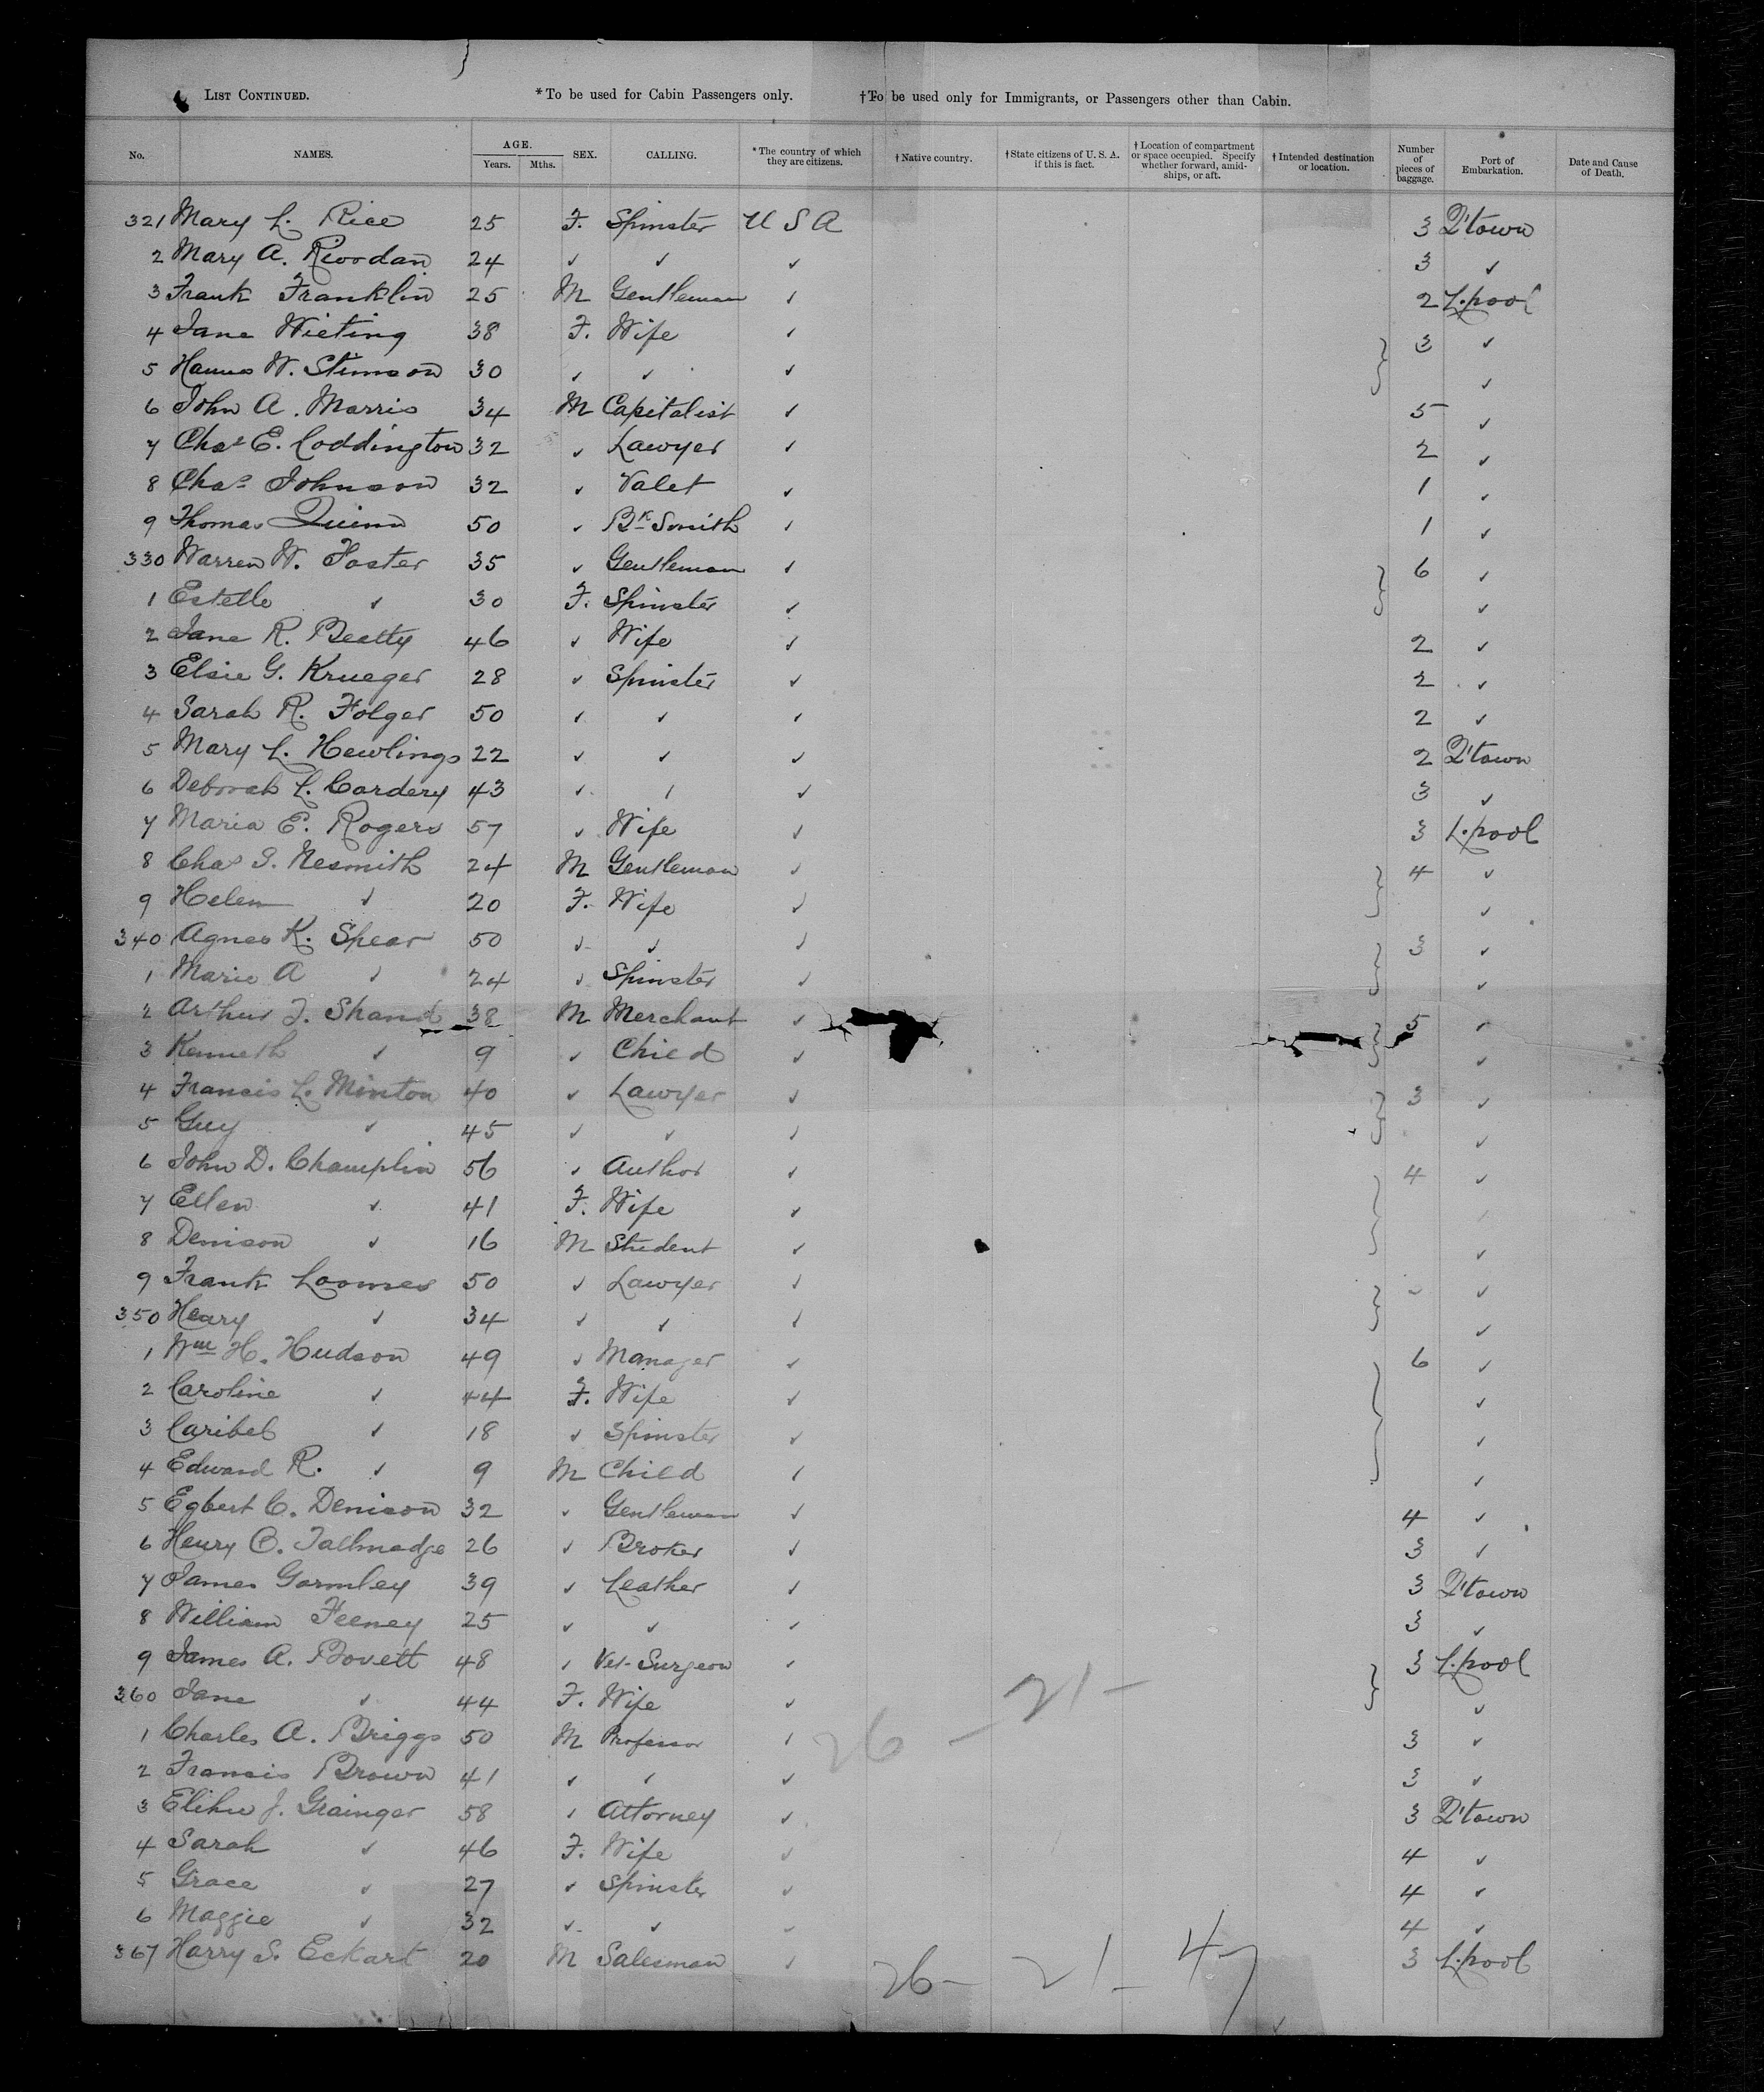 LIST CONTINUED. *To be used for Cabin Passengers only. †To be used only for Immigrants, or Passengers other than Cabin.
No. NAMES. AGE. Years. Mths. SEX. CALLING. *The country of which they are citizens. †Native country. †State citizens of U. S. A. if this is fact. †Location of compartment or space occupied. Specify whether forward, amidships, or aft. †Intended destination or location. Number of pieces of baggage. Port of Embarkation. Date and Cause of Death.
321 Mary L. Rice 25 F. Spinster U S A 3 Q'town
2 Mary A. Rioodan 24 ✓ ✓ ✓ 3 ✓
3 Frank Franklin 25 M Gentleman ✓ 2 L.pool
4 Jane Wieting 38 F. Wife ✓ 3 ✓
5 W. Stimson 30 ✓ ✓ ✓ ✓
6 John A. Morris 34 M Capitalist ✓ 5 ✓
7 Chas E. Coddington 32 ✓ Lawyer ✓ 2 ✓
8 Chas Johnson 32 ✓ Valet ✓ 1 ✓
9 Thomas Quinn 50 ✓ Bk Smith ✓ 1 ✓
330 Warren W. Foster 35 ✓ Gentleman ✓ 6 ✓
1 Estelle ✓ 30 F. Spinster ✓ ✓
2 Jane R. Beatty 46 ✓ Wife ✓ 2 ✓
3 Elsie G. Krueger 28 ✓ Spinster ✓ 2 ✓
4 Sarah R. Folger 50 ✓ ✓ ✓ 2 ✓
5 Mary L. Hewlings 22 ✓ ✓ ✓ 2 Q'town
6 Deborah L. Cordery 43 ✓ ✓ ✓ 3 ✓
7 Maria E. Rogers 57 ✓ Wife ✓ 3 L.pool
8 Chas S. Nesmith 24 M Gentleman ✓ 4 ✓
9 Helen ✓ 20 F. Wife ✓ ✓
340 Agnes K. Spear 50 ✓ ✓ ✓ 3 ✓
1 Marie A ✓ 24 ✓ Spinster ✓ ✓
2 Arthur J. Shand 38 M Merchant ✓ 5 ✓
3 Kenneth ✓ 9 ✓ Child ✓ ✓
4 Francis L. Minton 40 ✓ Lawyer ✓ 3 ✓
5 Guy ✓ 45 ✓ ✓ ✓ ✓
6 John D. Champlin 56 ✓ Author ✓ 4 ✓
7 Ellen ✓ 41 F. Wife ✓ ✓
8 Denison ✓ 16 M Student ✓ ✓
9 Frank Loomes 50 ✓ Lawyer ✓ ✓ ✓
350 Henry ✓ 34 ✓ ✓ ✓ ✓
1 Wm H. Hudson 49 ✓ Manager ✓ 6 ✓
2 Caroline ✓ 44 F. Wife ✓ ✓
3 Caribel ✓ 18 ✓ Spinster ✓ ✓
4 Edward R. ✓ 9 M Child ✓ ✓
5 Egbert C. Denison 32 ✓ Gentleman ✓ 4 ✓
6 Henry O. Tallmadge 26 ✓ Broker ✓ 3 ✓
7 James Gormley 39 ✓ Leather ✓ 3 Q'town
8 William Feeney 25 ✓ ✓ ✓ 3 ✓
9 James A. Bovett 48 ✓ Vet-Surgeon ✓ 3 L.pool
360 Jane ✓ 44 F. Wife ✓ ✓
1 Charles A. Briggs 50 M Professor ✓ 3 ✓
2 Francis Brown 41 ✓ ✓ ✓ 3 ✓
3 Elihu J. Grainger 58 ✓ Attorney ✓ 3 Q'town
4 Sarah ✓ 46 F. Wife ✓ 4 ✓
5 Grace ✓ 27 ✓ Spinster ✓ 4 ✓
6 Maggie ✓ 32 ✓ ✓ ✓ 4 ✓
367 Harry S. Eckart 20 M Salesman ✓ 3 L.pool
26 - 21 -
26 - 21 - 47